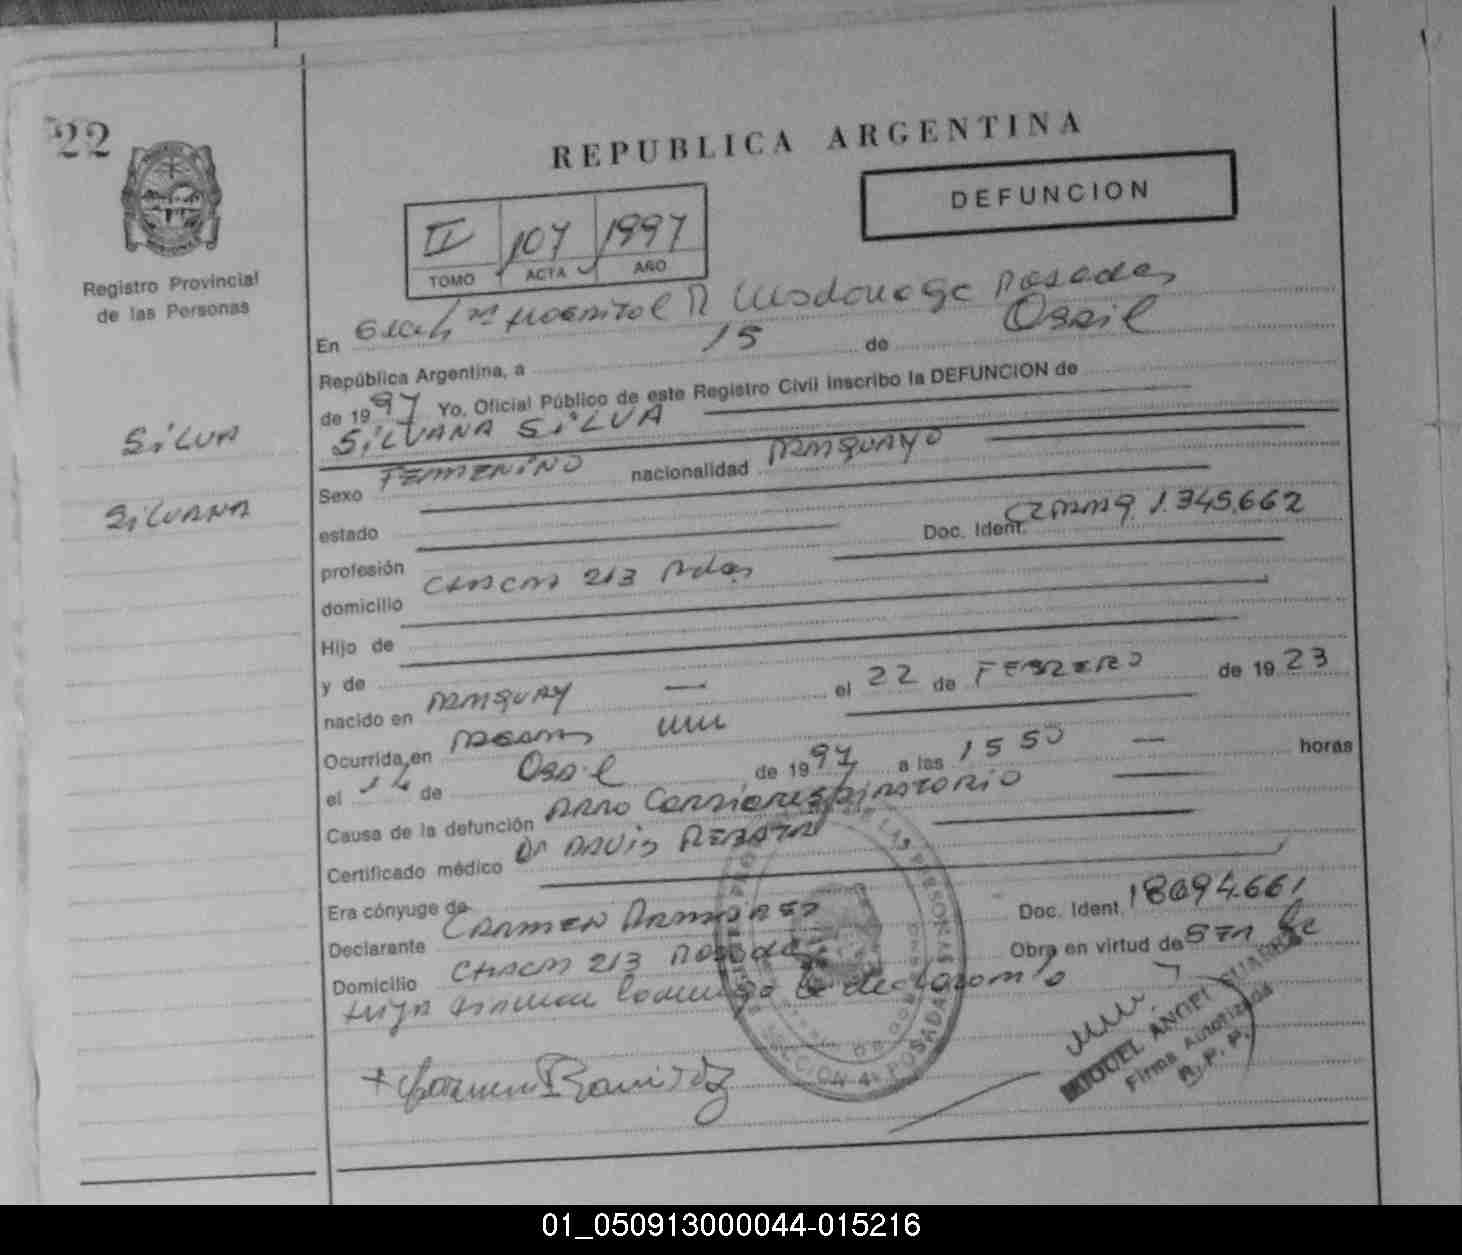 22
REPUBLICA ARGENTINA
DEFUNCION
II 107 1997
TOMO ACTA AÑO
Registro Provincial
de las Personas
En Hospital R Posadas
República Argentina, a 15 de
de 1997 Yo, Oficial Público de este Registro Civil inscribo la DEFUNCION de
SILVA
SILVANA SILVA
SILVANA
Sexo FEMENINO nacionalidad
estado
profesión Doc. Ident. 1.345.662
domicilio CHACRA 213 Pdas
Hijo de
y de
nacido en el 22 de FEBRERO de 1923
Ocurrida en
el 14 de de 1997 a las 15 50 horas
Causa de la defunción PARO Cardiorespiratorio
Certificado médico Dr DAVID
Era cónyuge de
Declarante CARMEN Doc. Ident. 18694.661
Domicilio CHACRA 213 Posadas Obra en virtud de
la declarante
+ Carmen Ramirez
MIGUEL ANGEL
Firma Autorizada
R. P. P.
DE LAS PERSONAS
SECCION 4ª POSADAS
01_050913000044-015216